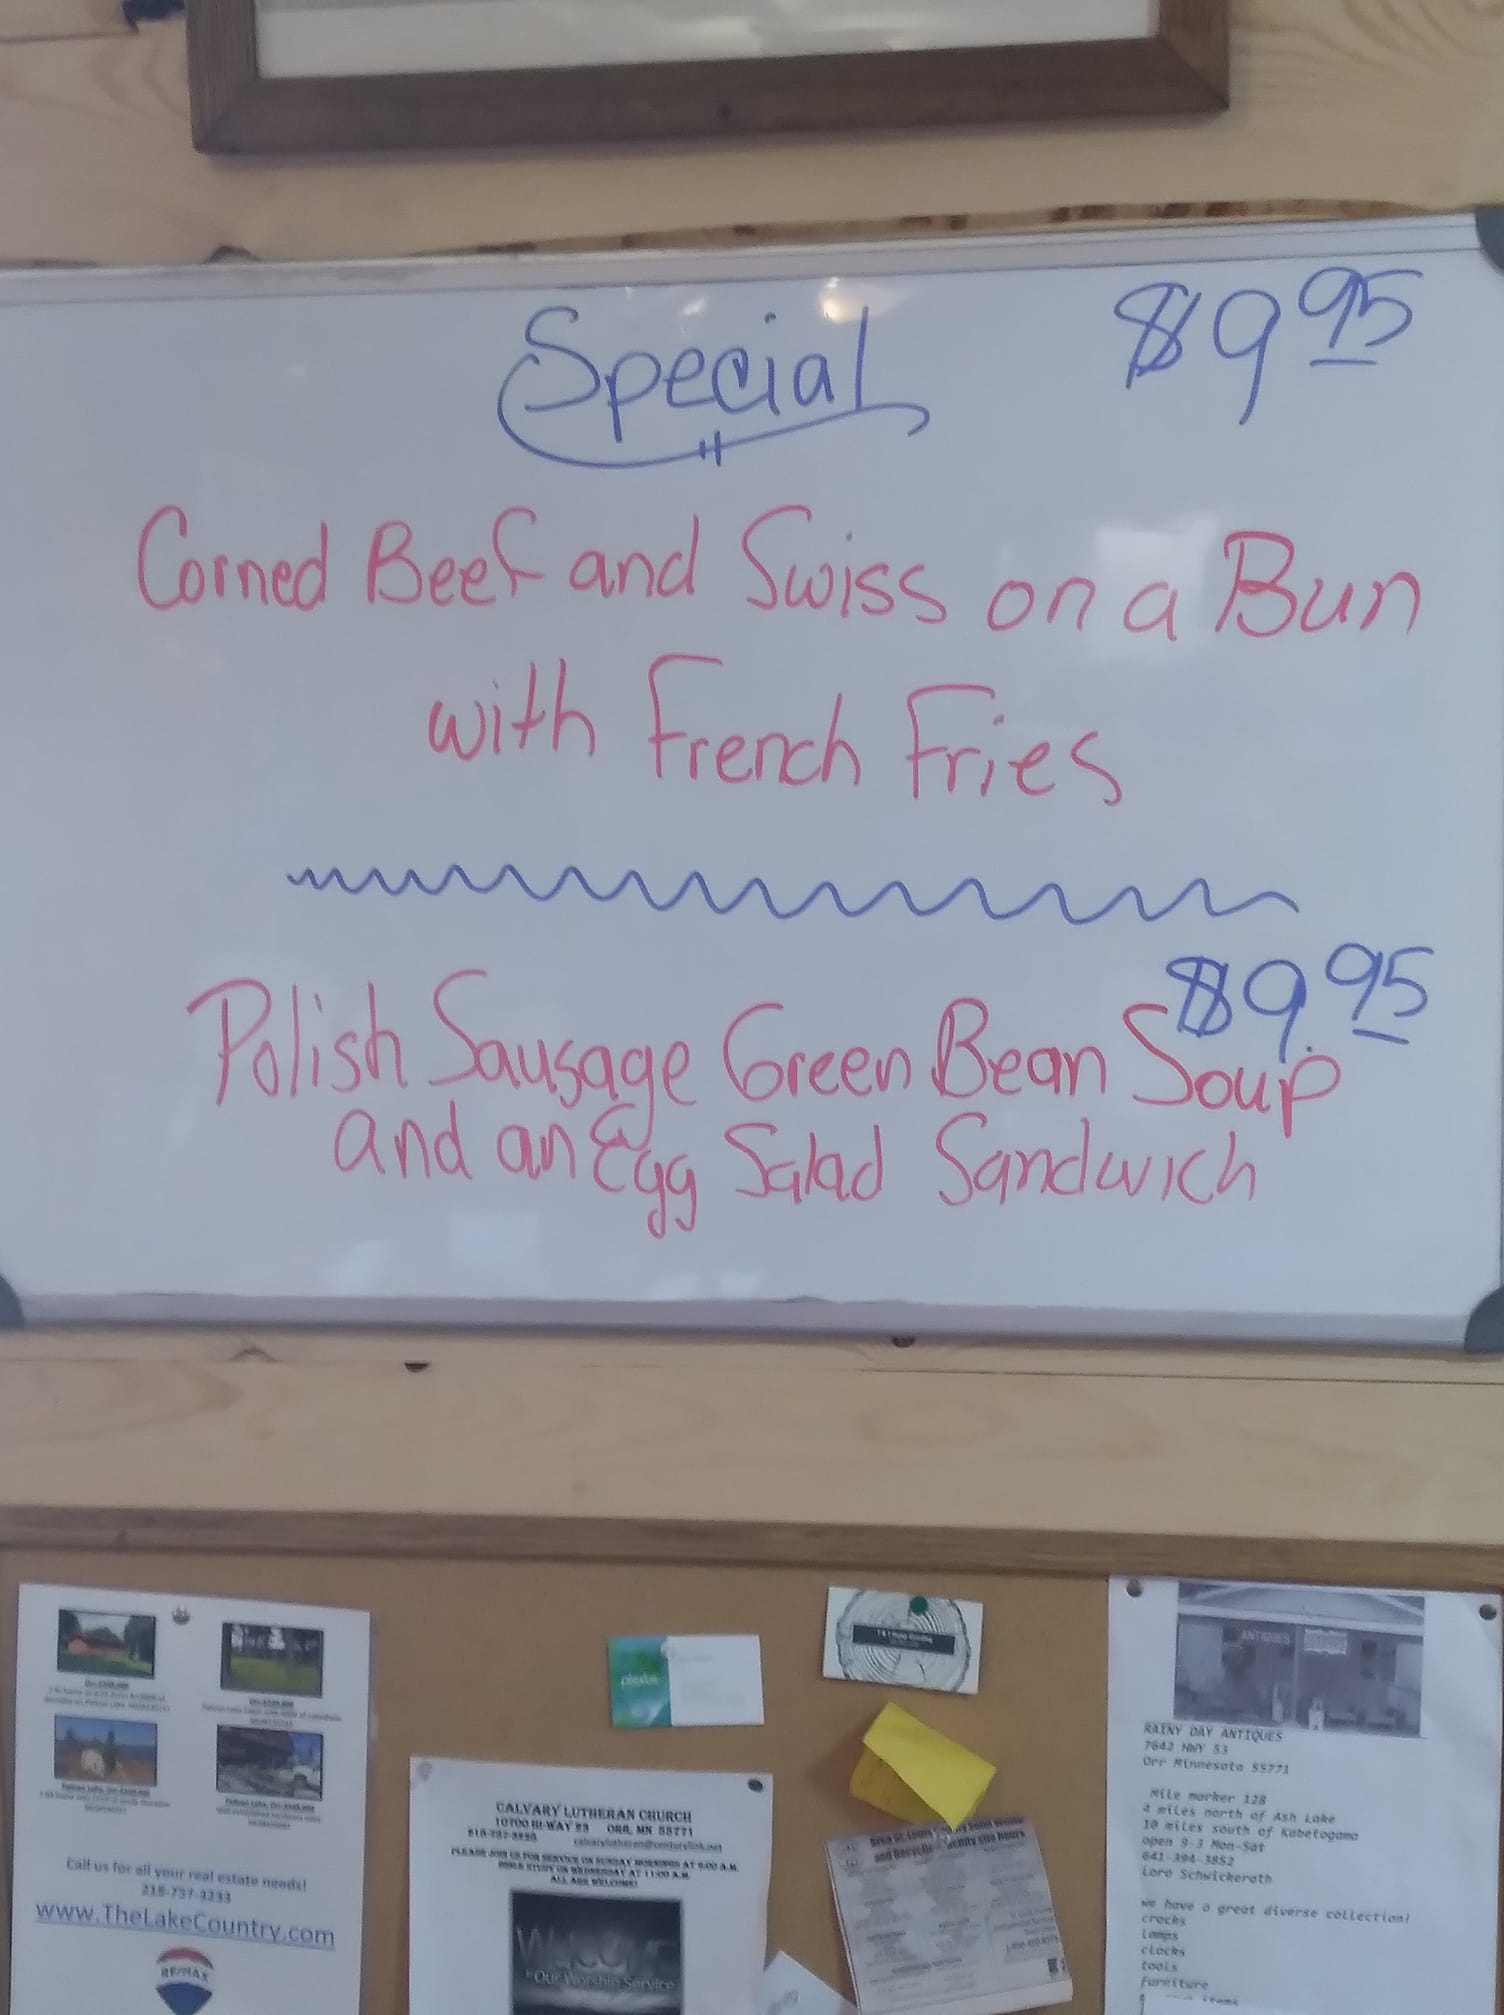 Special
$9 95
Corned Beef and Swiss on a Bun
with French Fries
$9.95
Polish Sausage Green Bean Soup
and an Egg Salad Sandwich
Call us for all your real estate needs!
218-757-3233
www.TheLakeCountry.com
RE/MAX
CALVARY LUTHERAN CHURCH
10700 HI-WAY 53 ORR, MN 55771
calvarylutheran@centurylink.net
PLEASE JOIN US FOR SERVICE ON SUNDAY MORNINGS AT 9:00 A.M.
BIBLE STUDY ON WEDNESDAY AT 11:00 A.M.
ALL ARE WELCOME!
WELCOME
Our Worship Service
plexus
and Recycle Facility site hours
ANTIQUES
RAINY DAY ANTIQUES
7642 HWY 53
Orr Minnesota 55771
Mile marker 128
4 miles north of Ash Lake
10 miles south of Kabetogama
open 9-3 Mon-Sat
641-394-3852
Lora Schwickerath
we have a great diverse collection!
crocks
lamps
clocks
tools
furniture
items